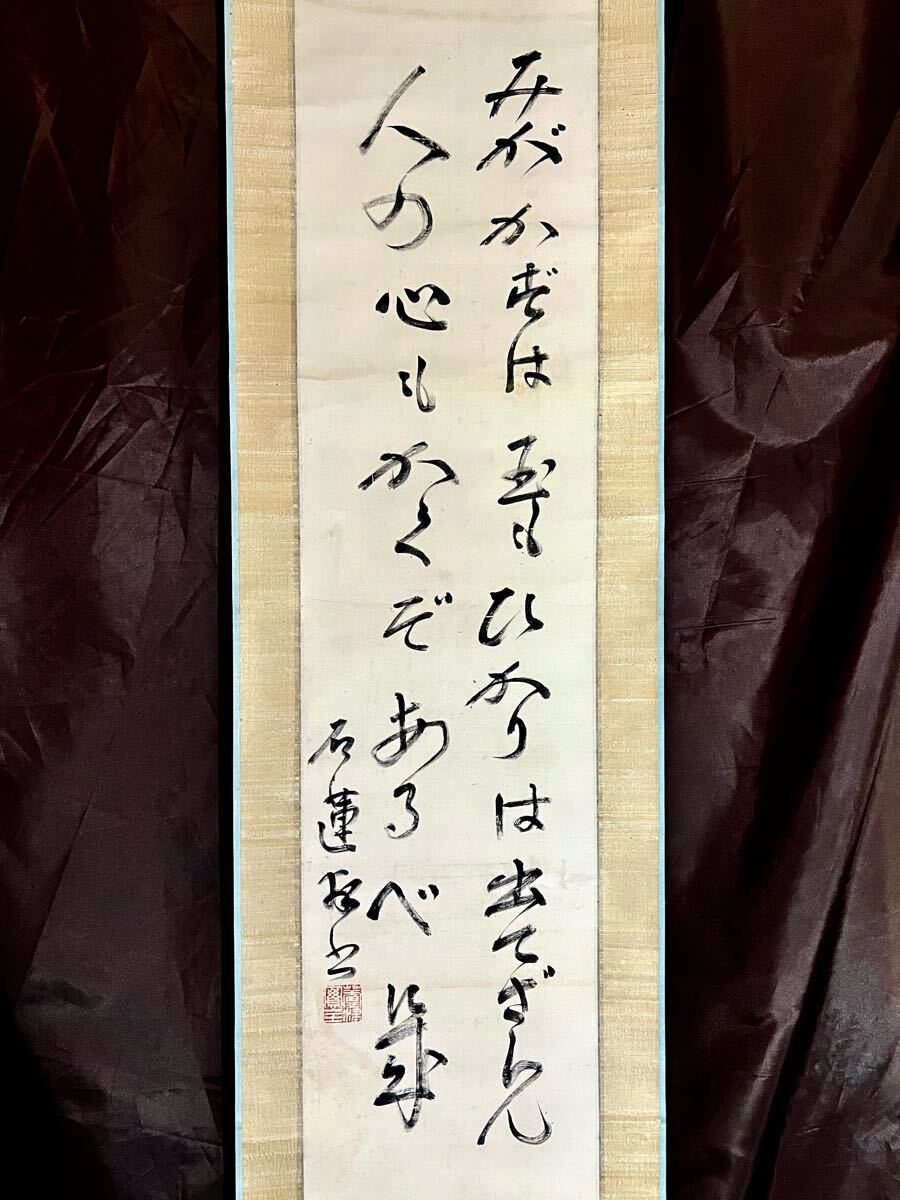 みがかずは玉もひかりは出てざらん
人の心もかくぞあるべき
石蓮